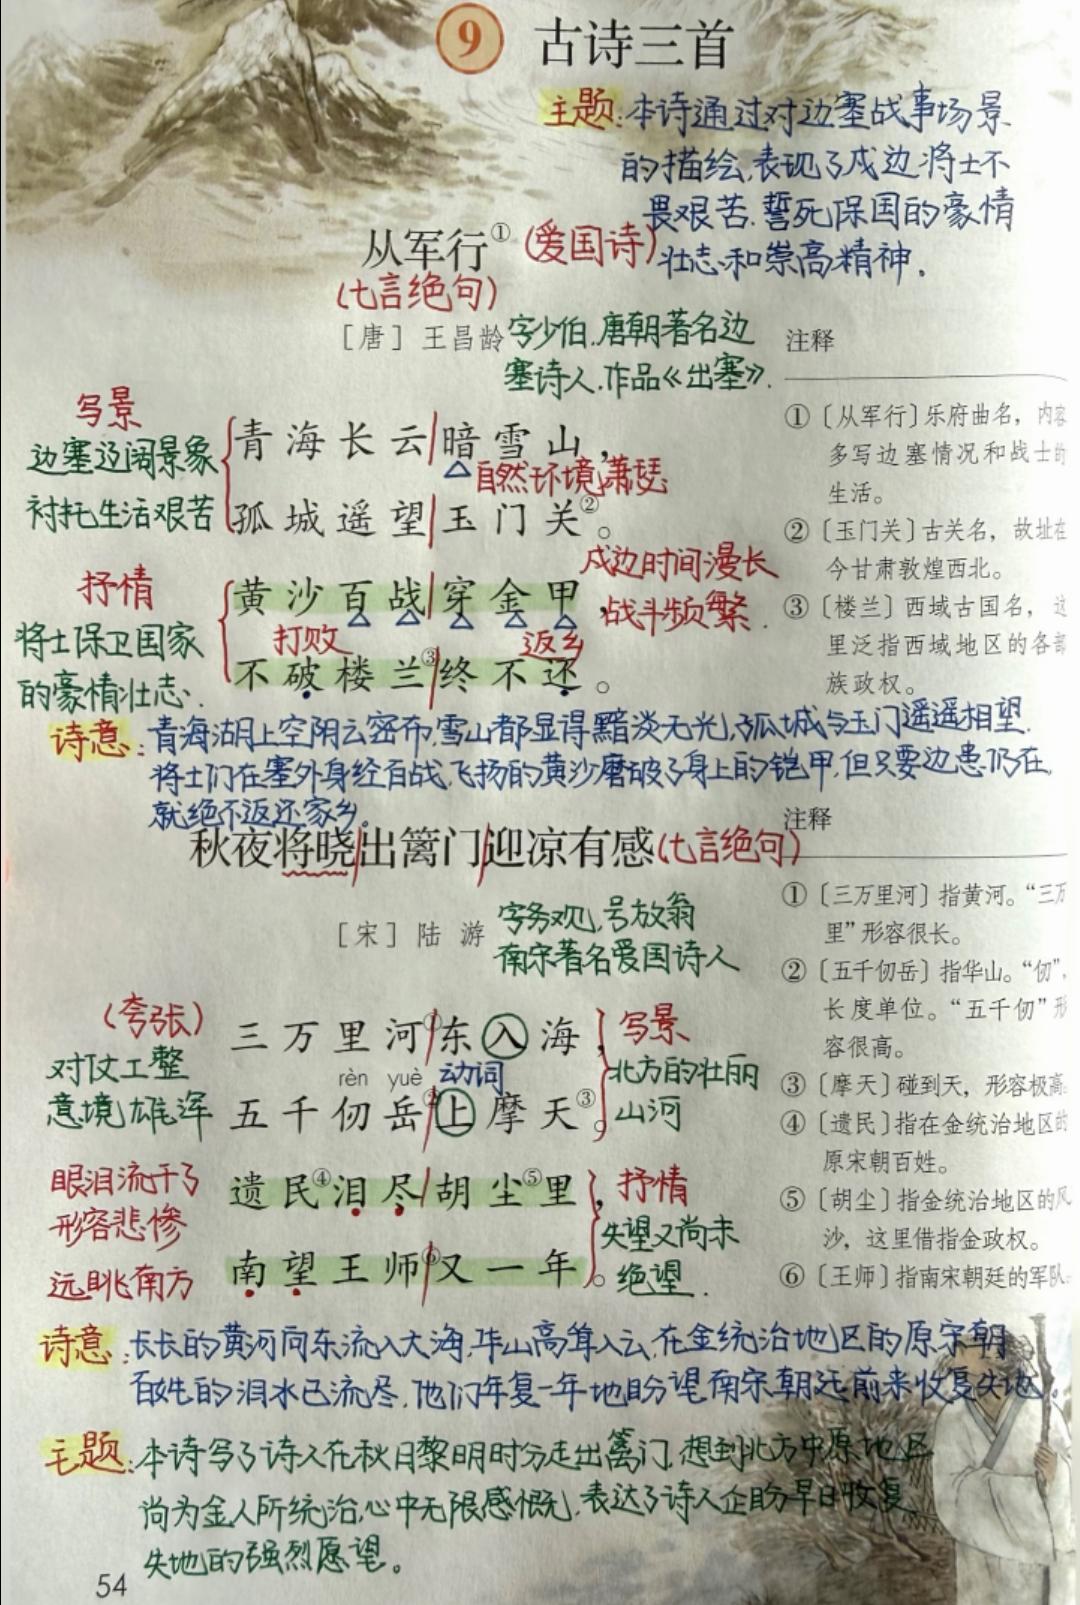 9 古诗三首
主题:本诗通过对边塞战事场景
的描绘,表现了戍边将士不
畏艰苦.誓死保国的豪情
壮志和崇高精神.
从军行① (爱国诗)
(七言绝句)
[唐] 王昌龄 字少伯.唐朝著名边
塞诗人.作品《出塞》.
写景
边塞辽阔景象
衬托生活艰苦
青海长云暗雪山,
自然环境萧瑟
孤城遥望玉门关②。
戍边时间漫长
战斗频繁.
抒情
将士保卫国家
的豪情壮志.
黄沙百战穿金甲,
打败 返乡
不破楼兰③终不还。
注释
①〔从军行〕乐府曲名,内容
多写边塞情况和战士的
生活。
②〔玉门关〕古关名,故址在
今甘肃敦煌西北。
③〔楼兰〕西域古国名,这
里泛指西域地区的各部
族政权。
诗意:青海湖上空阴云密布,雪山都显得黯淡无光,孤城与玉门遥遥相望.
将士们在塞外身经百战,飞扬的黄沙磨破了身上的铠甲,但只要边患仍在,
就绝不返还家乡。
秋夜将晓出篱门迎凉有感(七言绝句)
[宋] 陆 游 字务观,号放翁
南宋著名爱国诗人
(夸张)
对仗工整
意境雄浑
三万里河①东入海,
rèn yuè 动词
五千仞岳②上摩天③。
写景
北方的壮丽
山河
眼泪流干了
形容悲惨
远眺南方
遗民④泪尽胡尘⑤里,
南望王师⑥又一年。
抒情
失望又尚未
绝望.
注释
①〔三万里河〕指黄河。“三万
里”形容很长。
②〔五千仞岳〕指华山。“仞”,
长度单位。“五千仞”形
容很高。
③〔摩天〕碰到天,形容极高。
④〔遗民〕指在金统治地区的
原宋朝百姓。
⑤〔胡尘〕指金统治地区的风
沙,这里借指金政权。
⑥〔王师〕指南宋朝廷的军队。
诗意:长长的黄河向东流入大海,华山高耸入云,在金统治地区的原宋朝
百姓的泪水已流尽,他们年复一年地盼望南宋朝廷前来收复失地。
主题:本诗写了诗人在秋日黎明时分走出篱门,想到北方中原地区
尚为金人所统治,心中无限感慨,表达了诗人企盼早日收复
失地的强烈愿望。
54